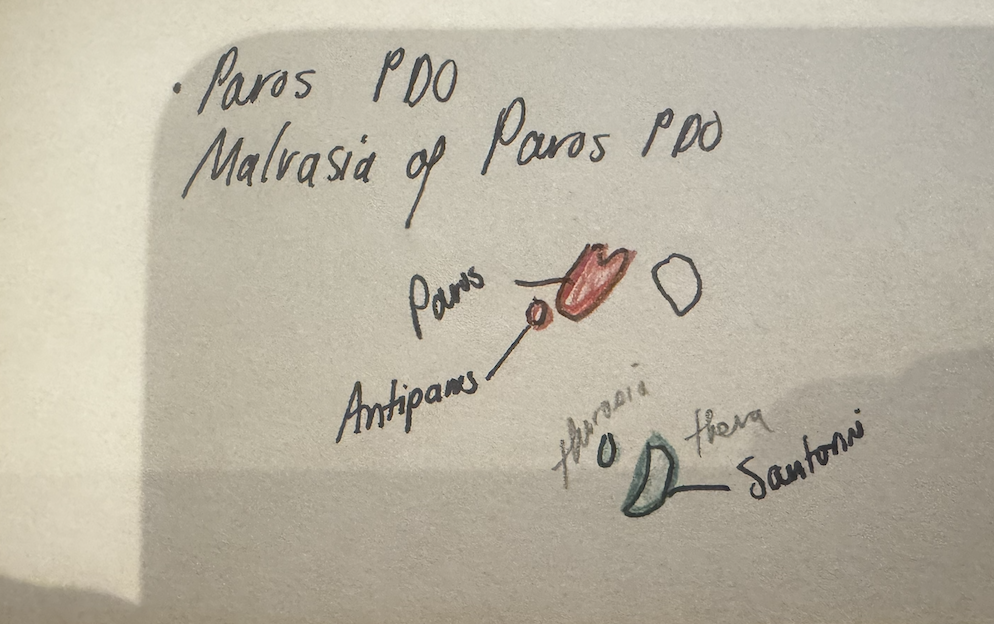 · Paros PDO
Malvasia of Paros PDO
Paros
Antiparos
therasia
thera
Santorini